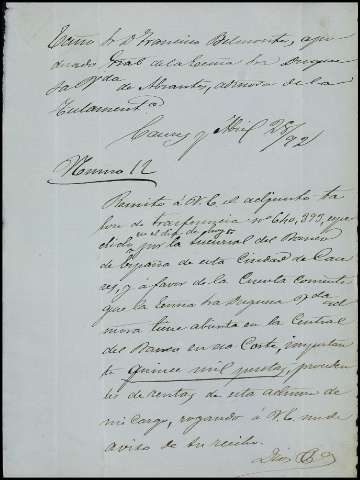 Exmo Sr Dn Francisco Belmonte, apo-
derado Gral de la Excma Sra Duque-
sa Vda de Abrantes, admora de la
Testamenta
Caceres y Abril 28/92
Numero 12
Remito á V.E. el adjunto ta
lon de trasferencia nº 640,393, expe
en el dia de hoy
dido por la sucursal del Banco
de España de esta Ciudad de Cace
res, y á favor de la Cuenta Corriente
que la Excma Sra Duquesa Vda ad-
mora tiene abierta en la Central
del Banco en esa Corte, importan
te quince mil pesetas, proceden
tes de rentas de esta admon de
mi cargo, rogando á V.E. me de
aviso de su recibo.
Dios &